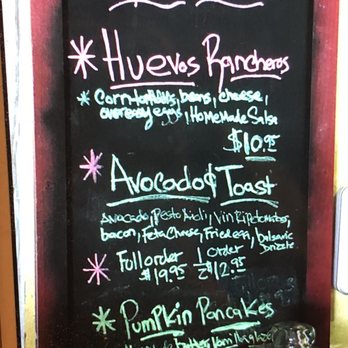 Huevos Rancheros
Corn tortillas, beans, cheese,
over easy eggs, HomeMade Salsa
$10.95
Avocado & Toast
Avocado, Pesto Aioli, Vin Ripe tomatoes,
bacon, Feta Cheese, Fried egg, balsamic
Drizzle
Full order 1/2 order
$19.95 $12.95
PumPkin Pancakes
butter,